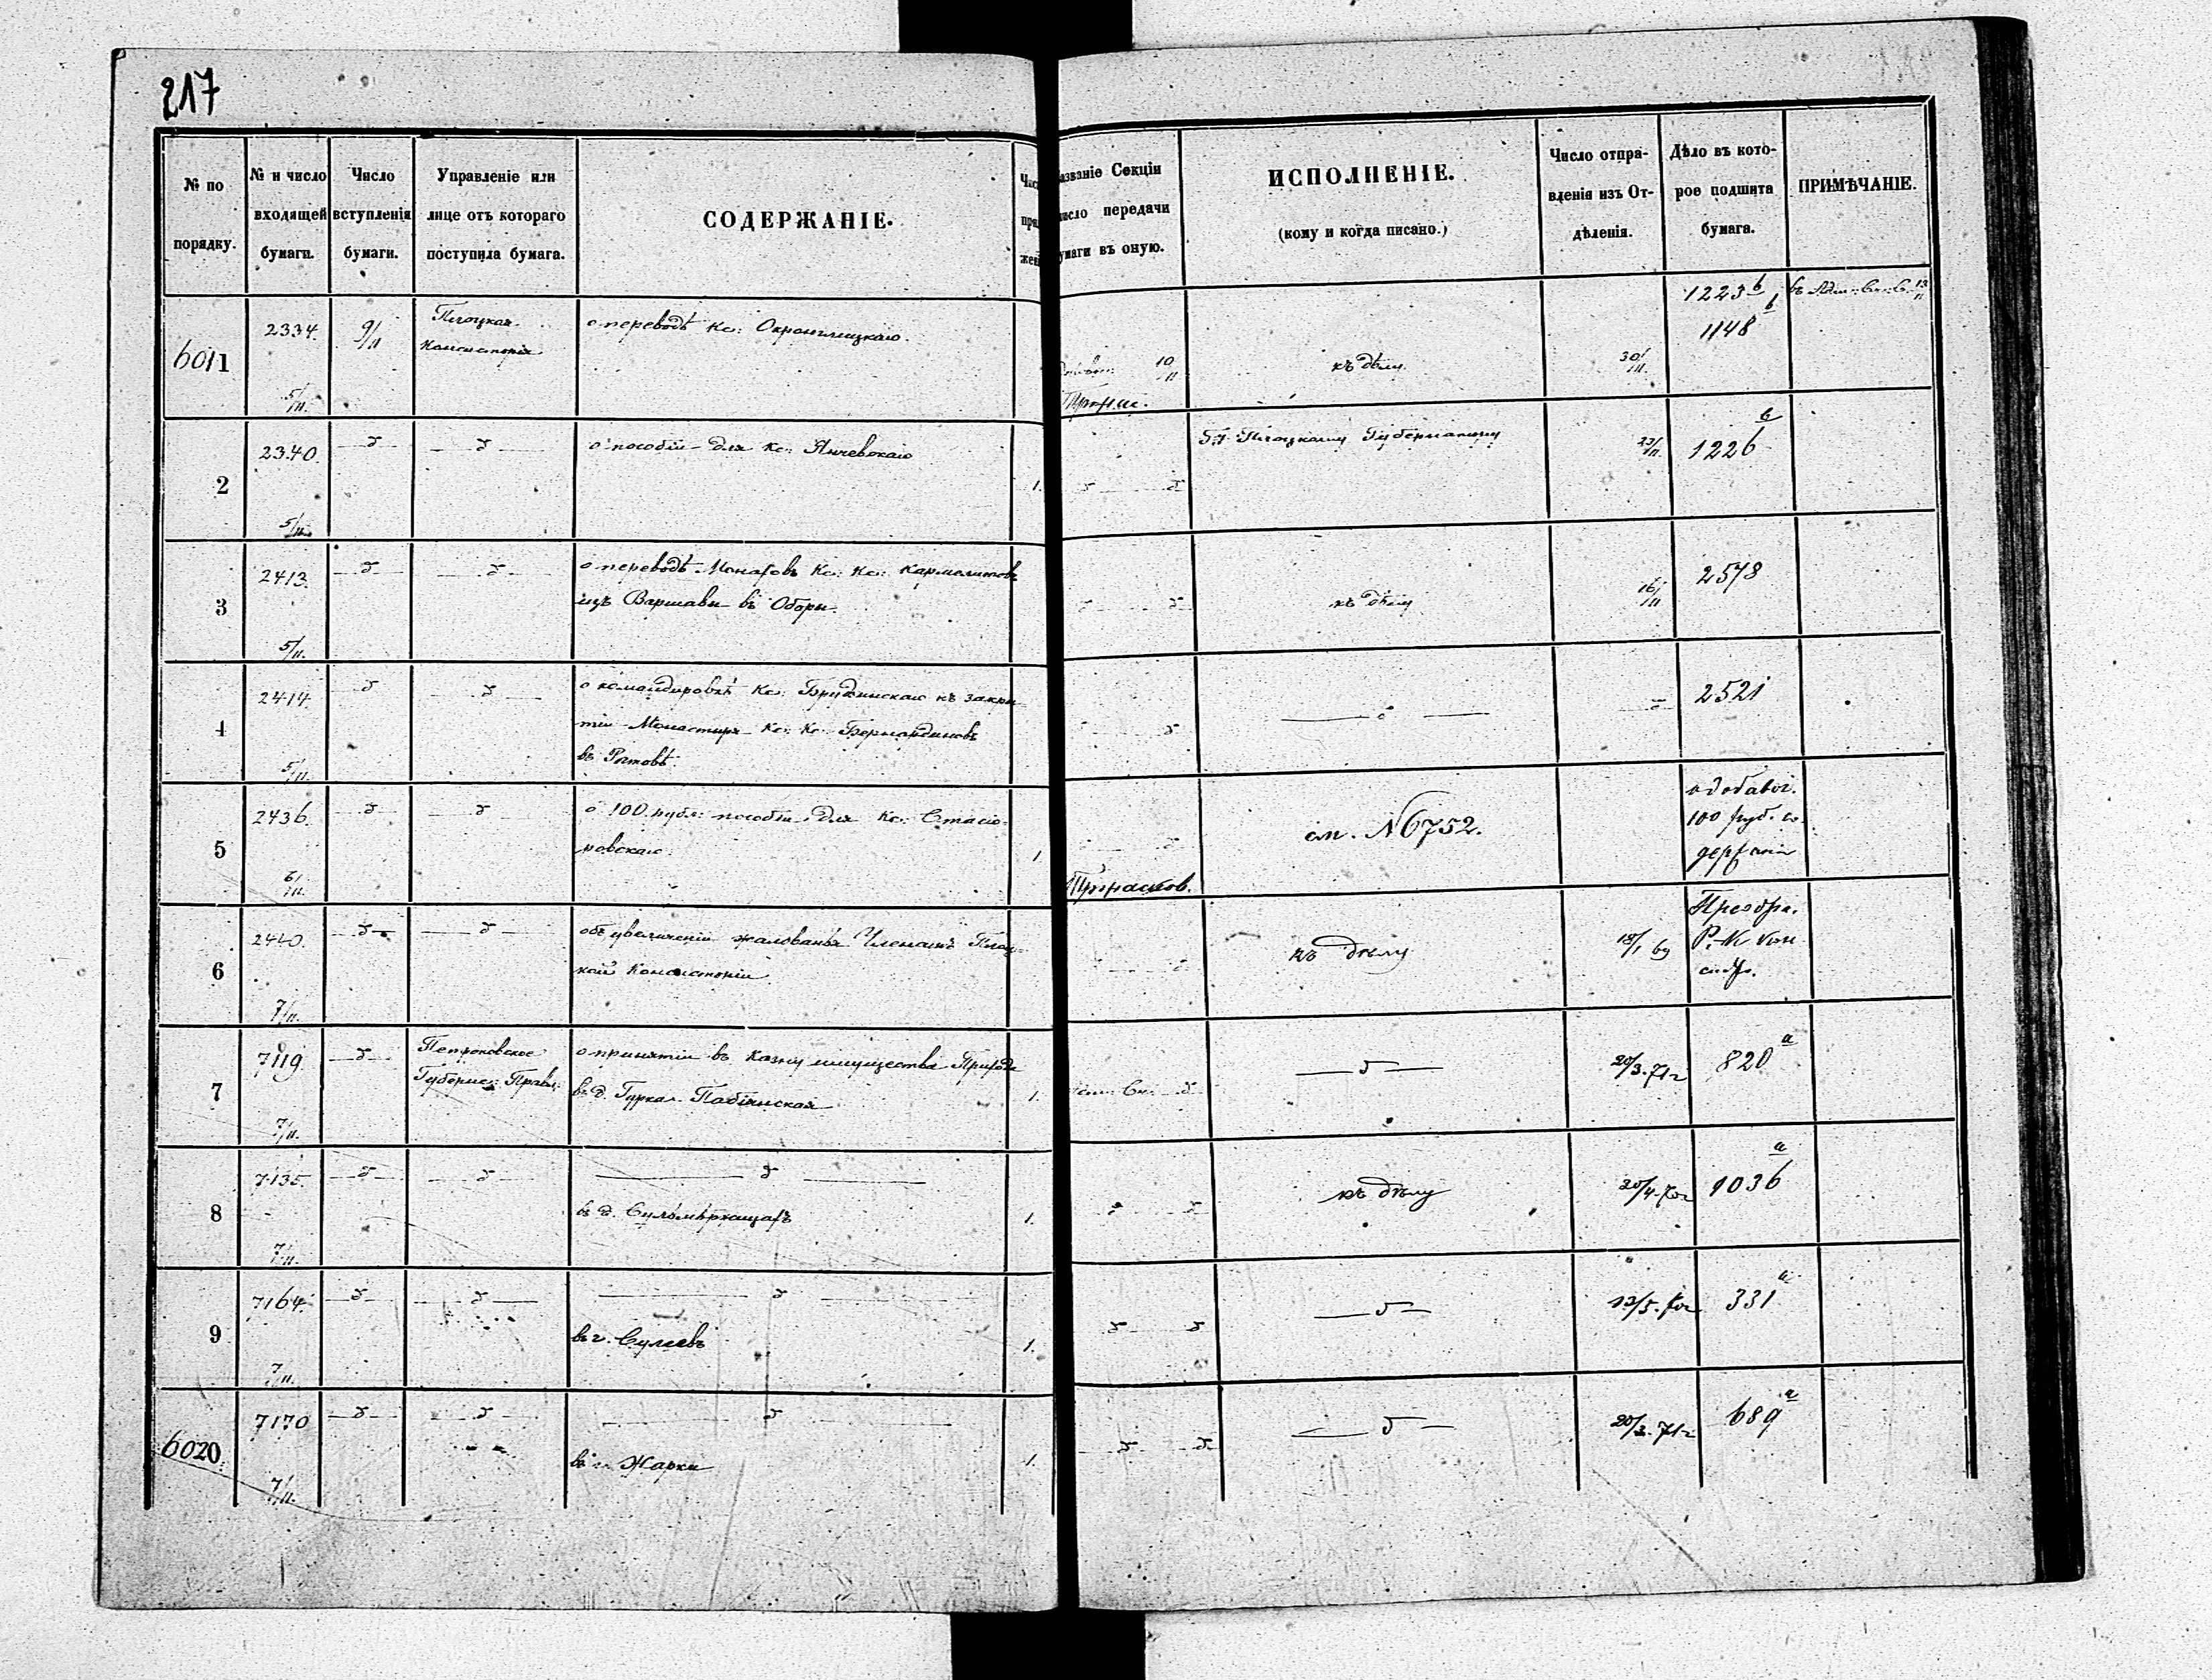 217
№ по порядку.
№ и число входящей бумаги.
Число вступленія бумаги.
Управленіе или лице отъ котораго поступила бумага.
СОДЕРЖАНІЕ.
азваніе Секціи
исло передачи
умаги въ оную.
ИСПОЛНЕНІЕ.
(кому и когда писано.)
Число отпра-
вленія изъ От-
дѣленія.
Дѣло въ кото-
рое подшита
бумага.
ПРИМѢЧАНІЕ.
6011
2334.
5/II.
9/II
Плоцкая
Консисторія
о переводѣ Кс:
10/II
къ дѣлу.
30/III.
1223 b
1148 b
2
2340.
5/II.
о пособіи для Кс: Янчевскаго
1.
Плоцкому Губернатору
23/II.
1226
3
2413.
5/II.
о переводѣ Монаховъ Кс: Кс: Кармелитовъ
изъ Варшавы въ Оборы.
къ дѣлу
16/III
2578
4
2414.
5/II.
о командировкѣ Кс: къ закры-
тію Монастыря Кс: Кс: Бернардиновъ
въ
2521
5
2436.
6/II.
о 100 рубл: пособіи для Кс: Стасіо-
ровскаго.
1
см. № 6752.
о добавоч.
100 руб. со-
держаніи
6
2440.
7/II.
объ увеличеніи жалованья Членамъ Плоц-
кой Консисторіи
къ дѣлу
18/1 69
Преобра.
Р. К. Кон
систр.
7
7119.
7/II.
Петроковское
Губернс: Правл:
о принятіи въ Казну имущества Прихода
въ д. Гурка Пабіянская
1.
20/3. 71 г
820 a
8
7135.
7/II.
въ д.
1.
къ дѣлу
20/4. 70 г
1036 a
9
7164.
7/II.
въ г. Сулеевъ
1.
13/5. 70 г
331 a
6020.
7170
7/II.
въ г. Жарки
1.
20/3. 71 г
689 a